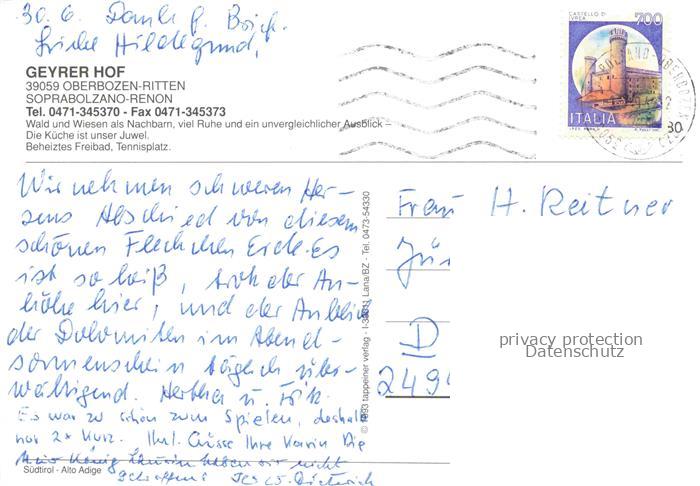 30.6. Dank f. Brief.
Liebe Hildegund,
GEYRER HOF
39059 OBERBOZEN-RITTEN
SOPRABOLZANO-RENON
Tel. 0471-345370 - Fax 0471-345373
Wald und Wiesen als Nachbarn, viel Ruhe und ein unvergleichlicher Ausblick –
Die Küche ist unser Juwel.
Beheiztes Freibad, Tennisplatz.
CASTELLO DI
IVREA
700
ITALIA
Wir nehmen schweren Her-
zens Abschied von diesem
schönen Fleckchen Erde. Es
ist so heiß, trotz der An-
höhe hier, und der Anblick
der Dolomiten im Abend-
sonnenschein täglich über-
wältigend. Hertha u.
Es war zu schön zum Spielen, deshalb
nur 2x kurz. Ihre Die
nicht
Südtirol - Alto Adige
© 1993 tappeiner verlag - I-39011 Lana/BZ - Tel. 0473-54330
Frau H. Reitner
D
249
privacy protection
Datenschutz